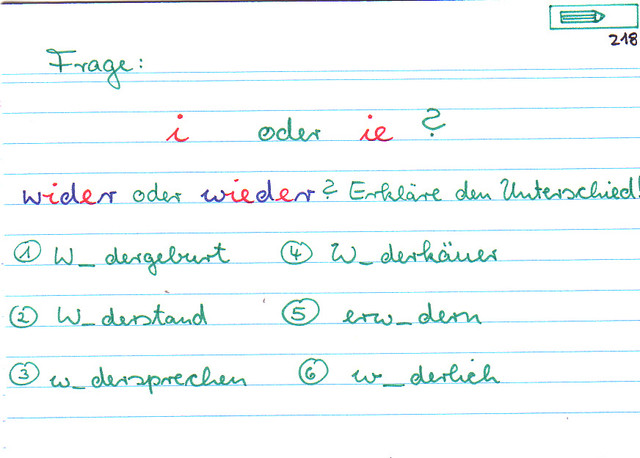 218
Frage:
i oder ie ?
wider oder wieder? Erkläre den Unterschied!
① W_dergeburt ④ W_derkäuer
② W_derstand ⑤ erw_dern
③ w_dersprechen ⑥ w_derlich